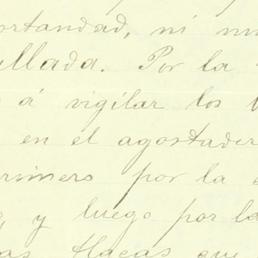 ortandad, ni mu
ullada. Por la
á vigilar los
en el agostader
rimero por la
, y luego por la
as flacas que